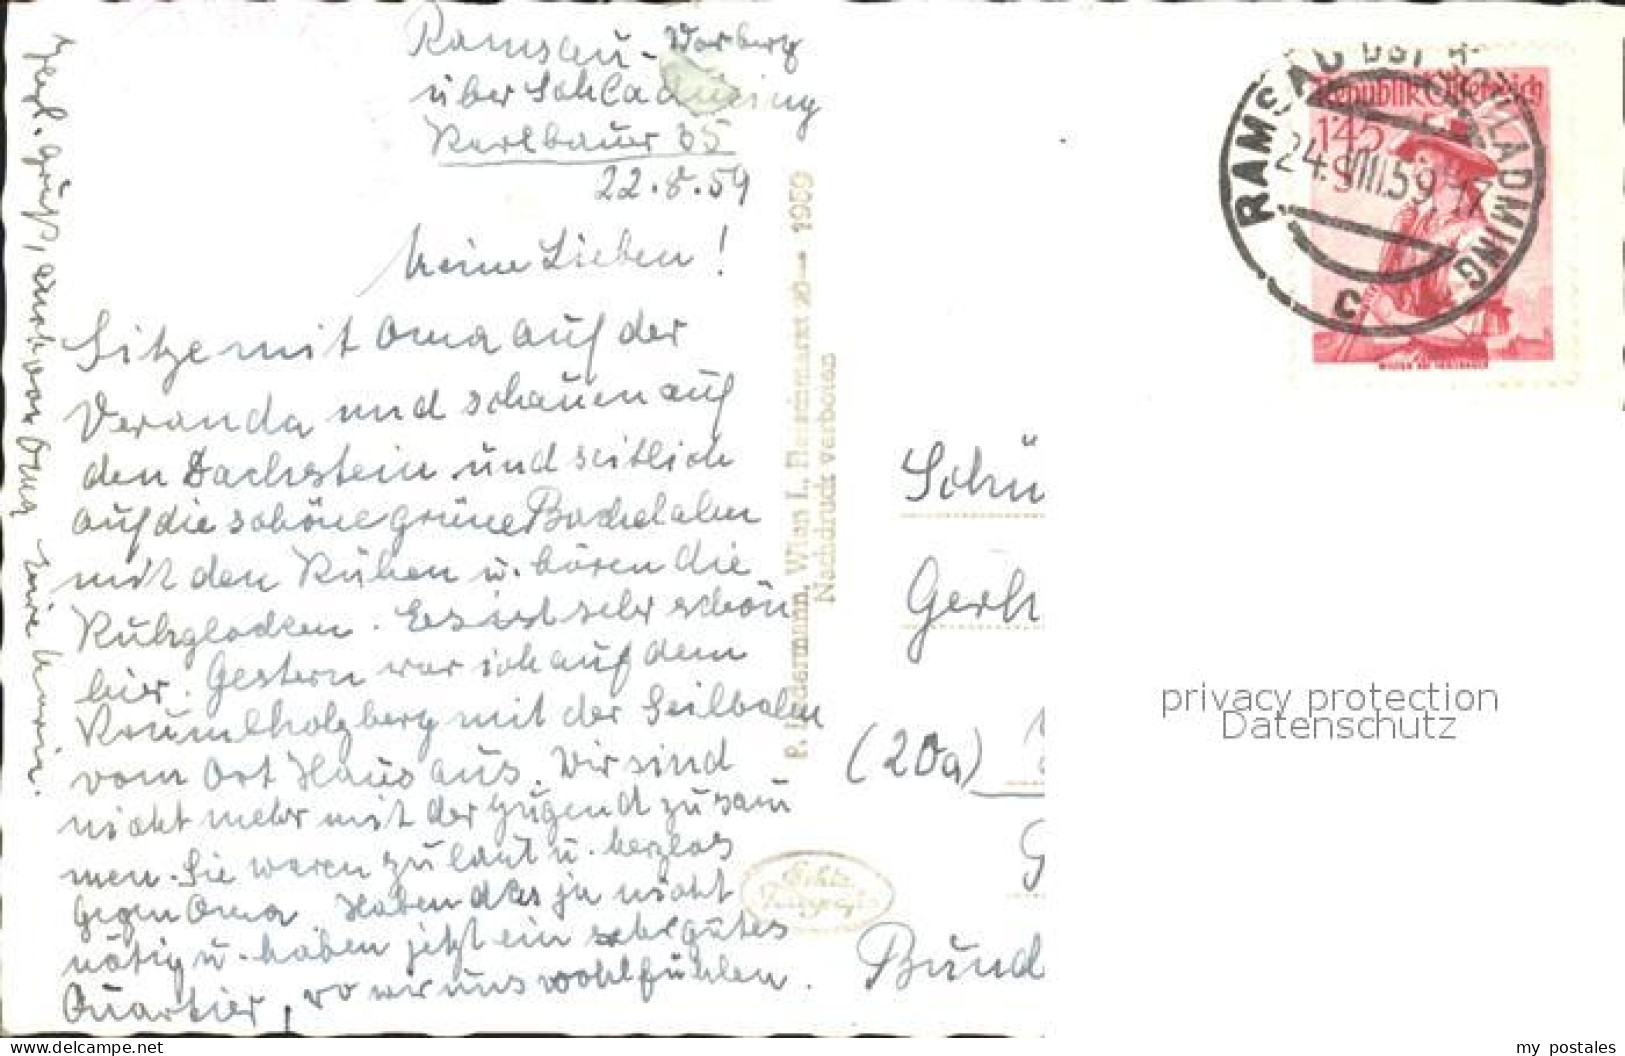 Ramsau-Vorberg
über Schladming
Karlbauer 35
22.8.59
Meine Lieben!
Sitze mit Oma auf der
Veranda und schauen auf
den Dachstein und seitlich
auf die schöne grüne Bachelalm
mit den Kühen u. hören die
Kuhglocken. Es ist sehr schön
hier. Gestern war ich auf dem
Krumlholzberg mit der Seilbahn
vom Ort Haus aus. Wir sind
nicht mehr mit der Jugend zusam
men. Sie waren zu laut u. herzlos
gegen Oma. Haben das ja nicht
nötig u. haben jetzt ein sehr gutes
Quartier, wo wir uns wohlfühlen.
Herzl. Grüße, auch von Oma Eure
P. Ledermann, Wien I., Fleischmarkt 20 — 1959
Nachdruck verboten
Echte
RAMSAU BEI SCHLADMING
24.VIII.59.17
C
Republik Österreich
1'45
S
Schü
Gerh
(20a)
G
Bund
privacy protection
Datenschutz
my postales
https://www.ansichtskarten-center.de